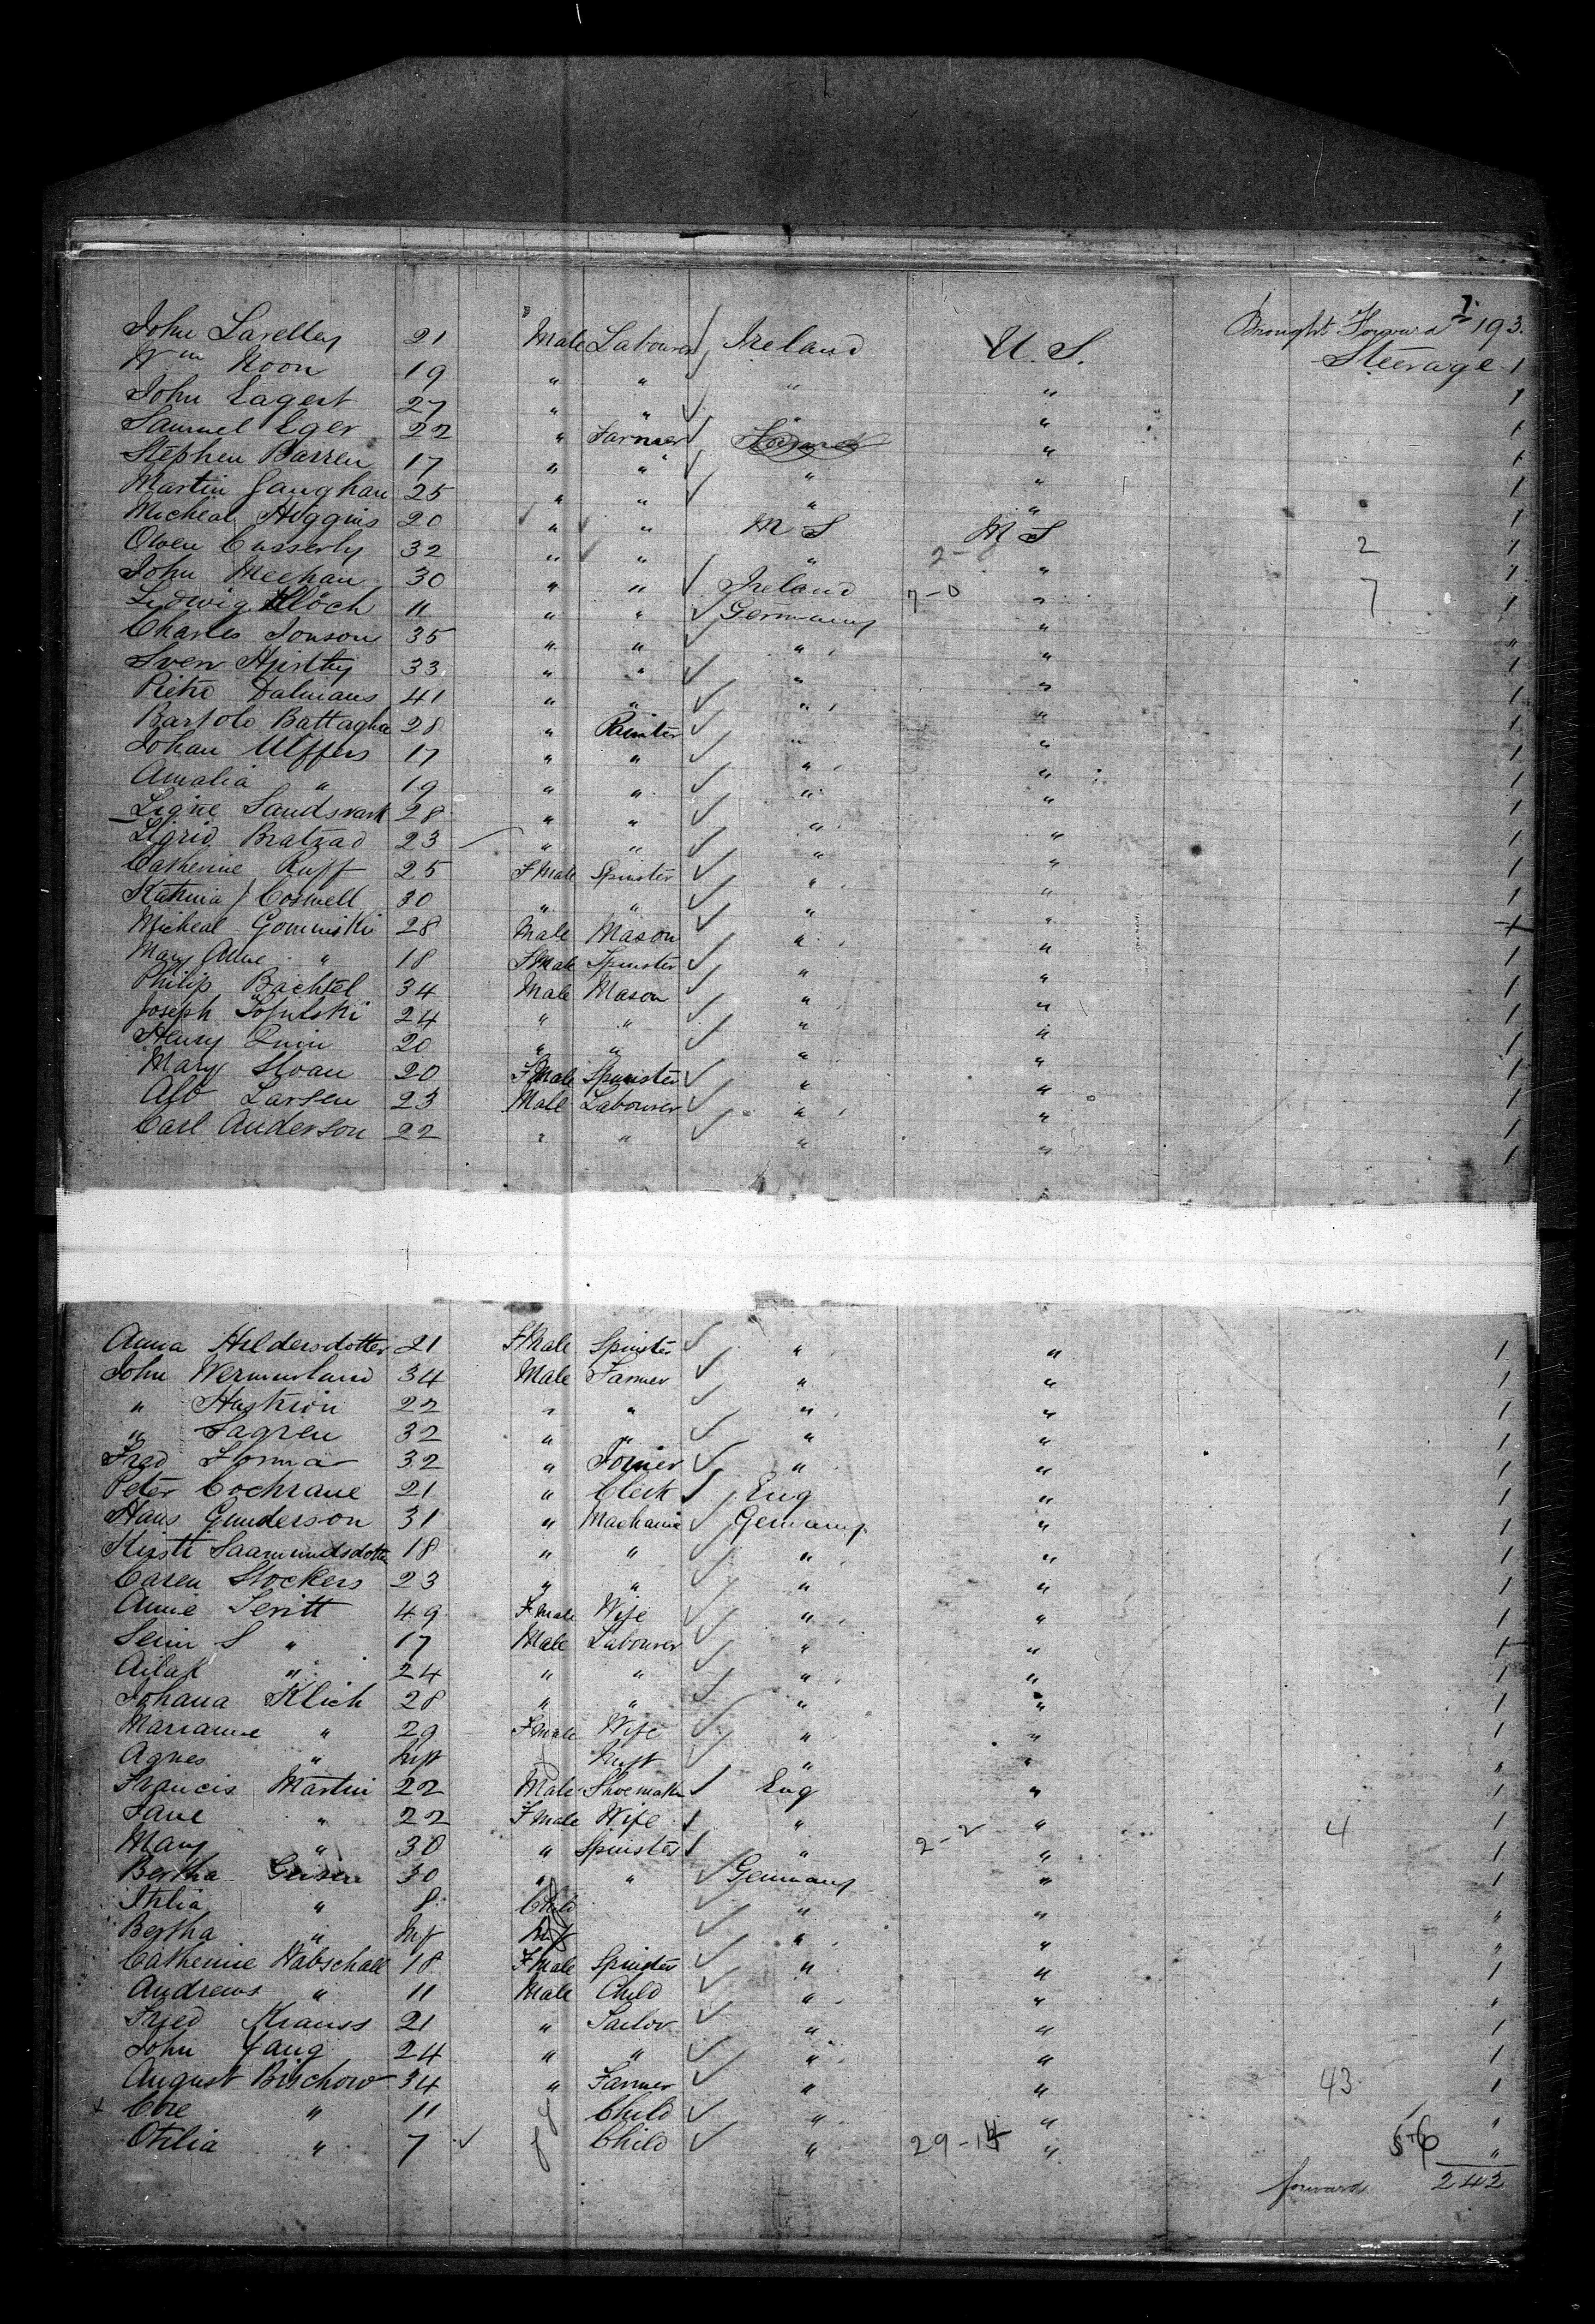 Brought Forward 193
John Lavelley 21 Male Labourer Ireland U.S. Steerage 1
Wm Noon 19 " " " " 1
John Eagert 27 " " " " 1
Samuel Eger 22 " Farmer " 1
Stephen Barren 17 " " " " 1
Martin Gaughan 25 " " " " 1
Micheal Higgins 20 " " M S M S 1
Owen Cusserly 32 " " " 2-0 " 2 1
John Meehan 30 " " Ireland 7-0 " 7 1
Ludwig Kloch 11 " " Germany " "
Charles Jonson 35 " " " " 1
Sven 33 " " " " 1
Pietro Dalmans 41 " " " " 1
Bartolo Battaglia 28 " Painter " " 1
Johan Ulffers 17 " " " " 1
Amalia " 19 " " " " 1
Signe Sandsvark 28 " " " " 1
Sigrid Bratzad 23 " " " " 1
Catherine Ruff 25 F Male Spinster " " 1
Katrina Coswell 30 " " " " 1
Micheal Gominski 28 Male Mason " " 1
Mary Anne " 18 F Male Spinster " " 1
Philip Bachtel 34 Male Mason " " 1
Joseph 24 " " " " 1
Henry Quin 20 " " " " 1
Mary Sloan 20 F Male Spinster " " 1
Alb Larsen 23 Male Labourer " " 1
Carl Anderson 22 " " " " 1
Anna Hildersdotter 21 F Male Spinster " " 1
John Wermerland 34 Male Farmer " " 1
" 22 " " " " 1
" Sagren 32 " " " " 1
Fred 32 " Joiner " " 1
Peter Cochrane 21 " Clerk Eng " 1
Hans Gunderson 31 " Machanic Germany " 1
Kirsti Saamundsdotter 18 " " " " 1
Caren Stockers 23 " " " " 1
Annie Seritt 49 F Male Wife " " 1
S " 17 Male Labourer " " 1
" 24 " " " " 1
Johana Klich 28 " " " " 1
Marianne " 29 F Male Wife " " 1
Agnes " Inft Inft " " "
Francis Martin 22 Male Shoemaker Eng " 1
Jane " 22 F Male Wife " " 4 1
Mary " 30 " Spinster " 2-2 " 1
Bertha Geisen 30 " " Germany " 1
" 8 Child " " "
Bertha " Inf Inf " " "
Catherine Habschall 18 F Male Spinster " " 1
Andrews " 11 Male Child " " "
Fried Krauss 21 " Sailor " " 1
John Yang 24 " " " " 1
August Bischow 34 " Farmer " " 43 1
" 11 Child " " "
Otilia " 7 Child " 29-14 " 56 "
forward 242